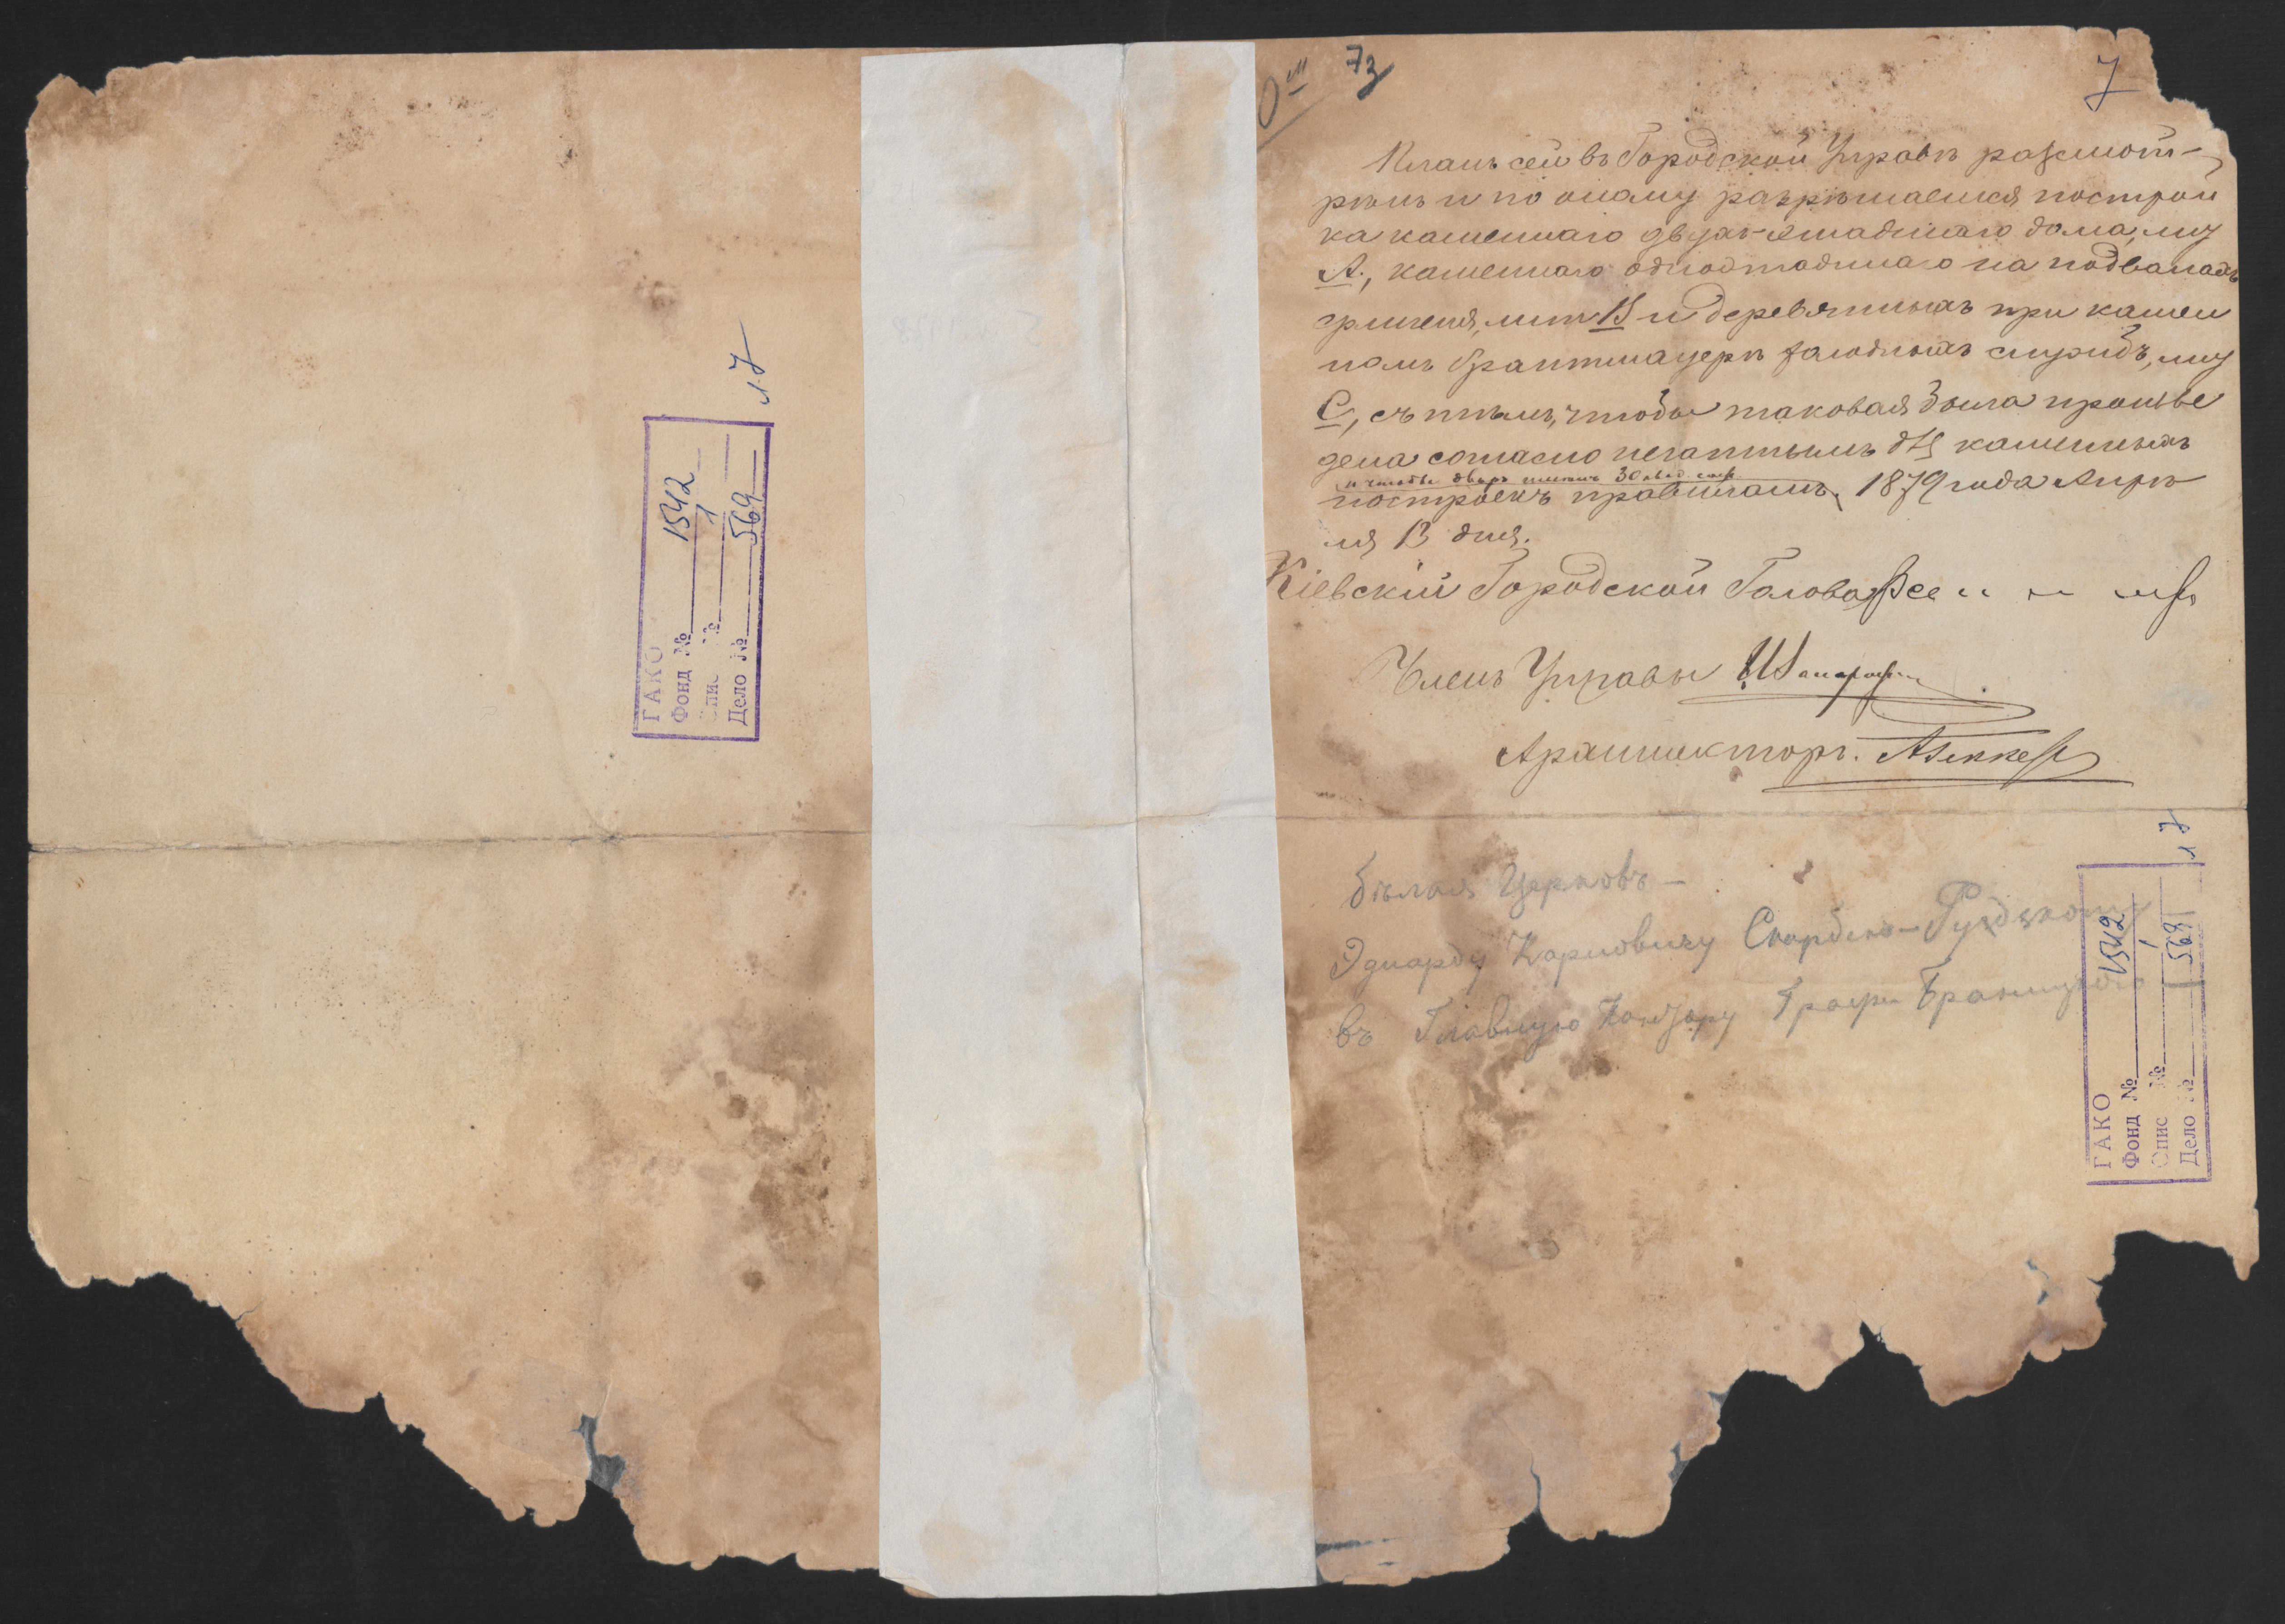 7
73
Планъ сей въ Городской Управѣ разсмот-
рѣнъ и по оному разрѣшается построй
ка каменнаго двухъ-этажнаго дома, лит
А., каменнаго одноэтажнаго на подвалахъ
флигеля, лит В и деревянныхъ при камен
номъ брантмауерѣ холодныхъ службъ, лит
С, съ тѣмъ, чтобы таковая была произве
дена согласно печатнымъ для каменныхъ
и чтобы дворъ имѣлъ 30 квад саж
построекъ правиламъ. 1879 года Апрѣ
ля 13 дня.
Кіевскій Городской Голова
Членъ Управы
Архитекторъ.
Бѣлая Церковь –
Эдуарду Карловичу Скорбско-Рудскому
въ Главную Контору Графа Браницкого
ГАКО
Фонд № 1542
Опис № 1
Дело № 569
л 7
ГАКО
Фонд № 1542
Опис № 1
Дело № 569
л 7